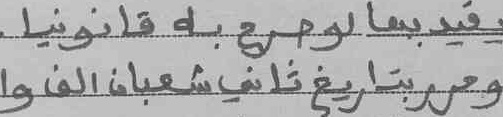 يفيد بما لو صرح به قانونيا
وحرر بتاريخ ثاني شعبان الف وا